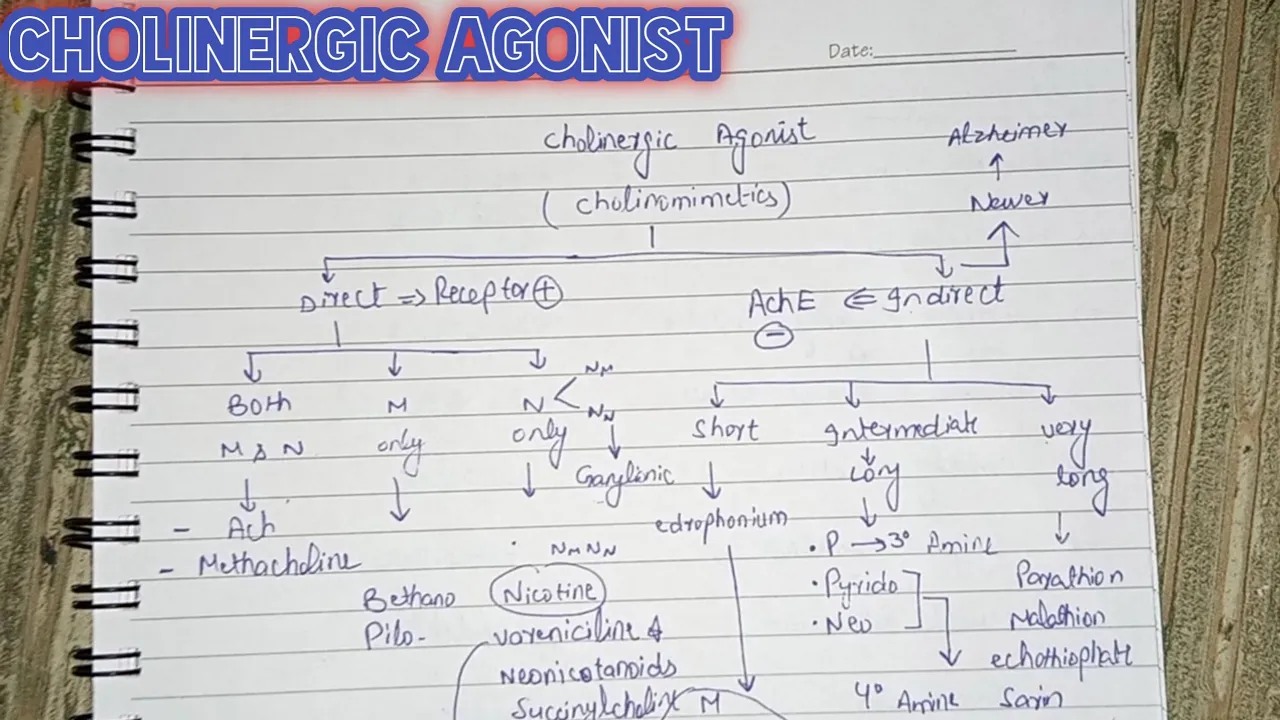 CHOLINERGIC AGONIST
Date:
Cholinergic Agonist
(Cholinomimetics)
Alzheimer
Newer
Direct => Receptor +
AchE <= Indirect
-
Both
M & N
M
only
N
only
NM
NN
Ganglionic
Short
Intermediate
Long
very
long
- Ach
- Methacholine
Bethano
Pilo-
NM NN
Nicotine
vareniciline
neonicotanoids
Succinylcholine
edrophonium
M
• P → 3° Amine
• Pyrido
• Neo
4° Amine
Parathion
Malathion
echothiophate
Sarin